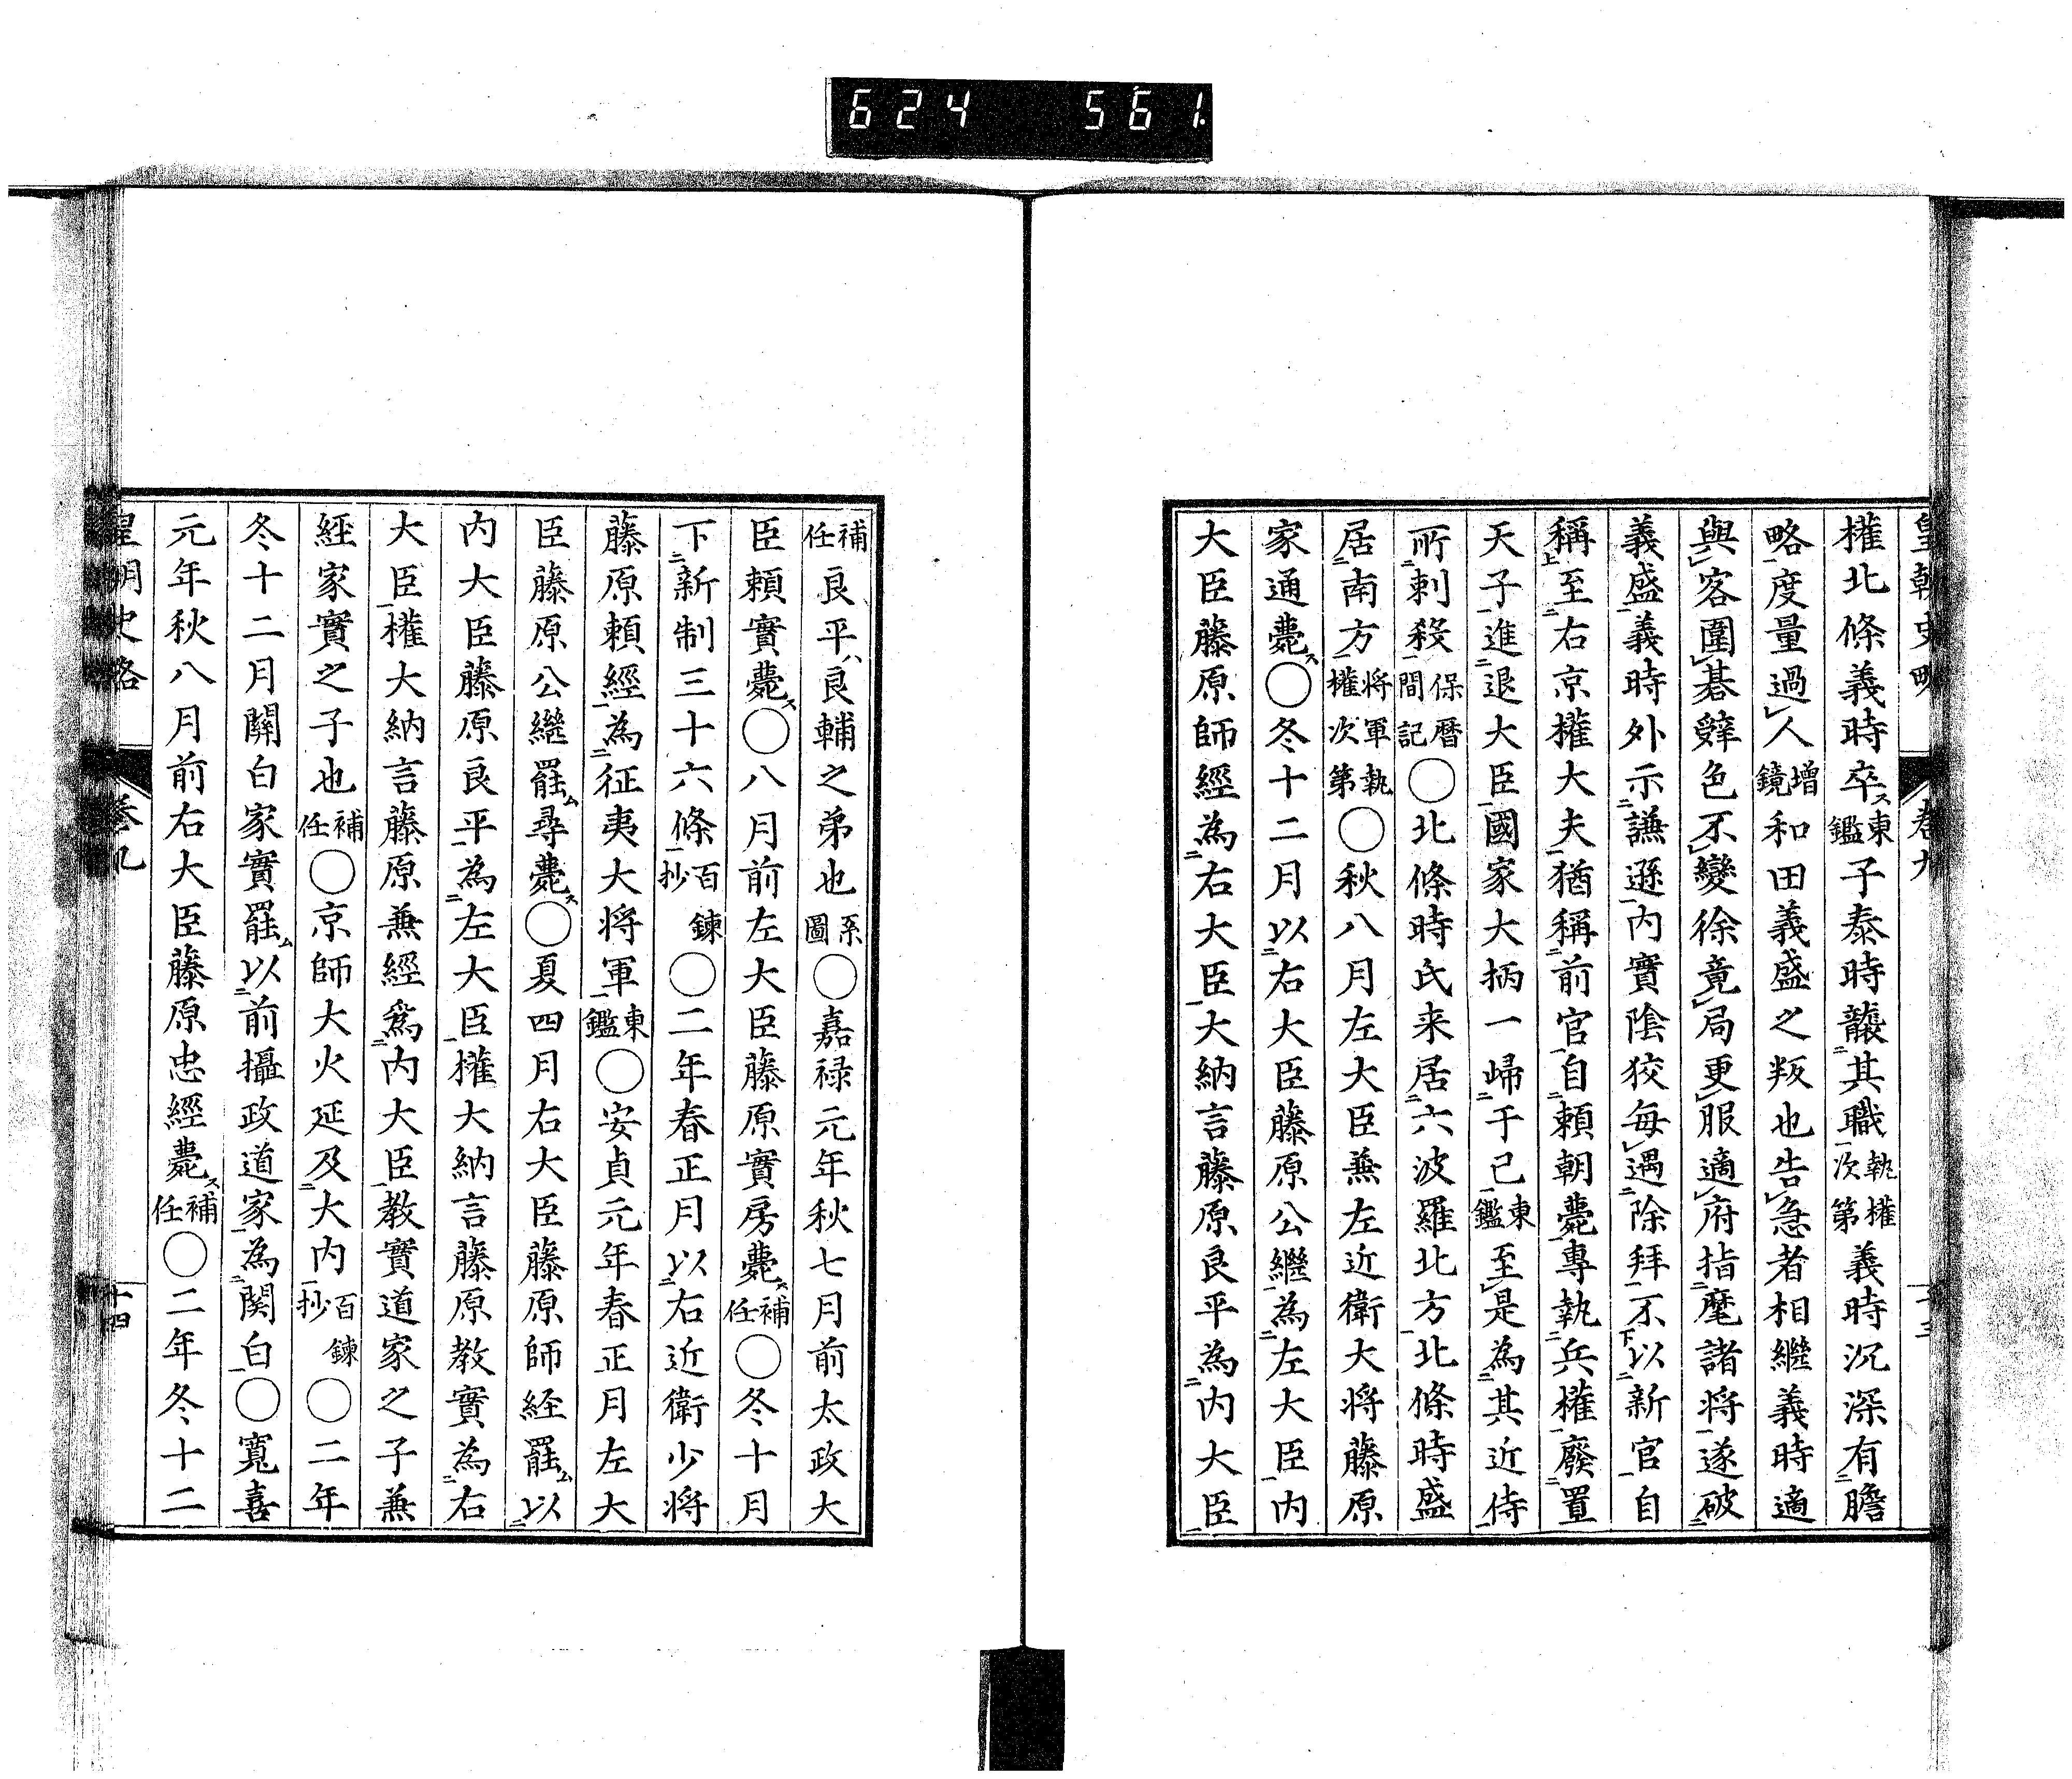 624 561
皇朝史略 卷九
權北條義時卒東鑑子泰時襲其職執權次第義時沉深有膽
略度量過人增鏡和田義盛之叛也告急者相繼義時適
與客圍碁辤色不變徐竟局更服適府指麾諸將遂破
義盛義時外示謙遜内實陰狡每遇除拜不以新官自
稱至右京權大夫猶稱前官自賴朝薨專執兵權廢置
天子進退大臣國家大柄一歸于己東鑑至是為其近侍
所刺殺保暦間記○北條時氏来居六波羅北方北條時盛
居南方将軍執權次第○秋八月左大臣兼左近衛大将藤原
家通薨○冬十二月以右大臣藤原公繼為左大臣内
大臣藤原師經為右大臣大納言藤原良平為内大臣
補任良平良輔之弟也系圖○嘉禄元年秋七月前太政大
臣賴實薨○八月前左大臣藤原實房薨補任○冬十月
下新制三十六條百鍊抄○二年春正月以右近衛少将
藤原賴經為征夷大将軍東鑑○安貞元年春正月左大
臣藤原公繼罷尋薨○夏四月右大臣藤原師経罷以
内大臣藤原良平為左大臣權大納言藤原教實為右
大臣權大納言藤原兼經爲内大臣教實道家之子兼
經家實之子也補任○京師大火延及大内百鍊抄○二年
冬十二月關白家實罷以前攝政道家為関白○寬喜
元年秋八月前右大臣藤原忠經薨補任○二年冬十二
皇朝史略 卷九 十四